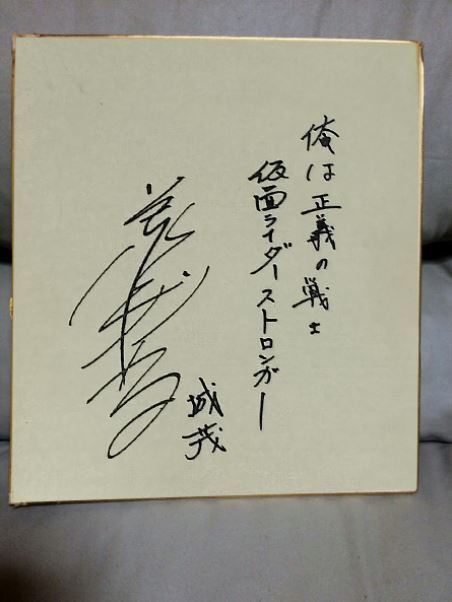 俺は正義の戦士
仮面ライダーストロンガー
城茂